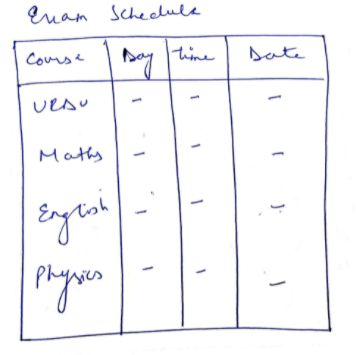 Exam Schedule
Course Day time Date
URDU - - -
Maths - - -
English - - -
Physics - - -